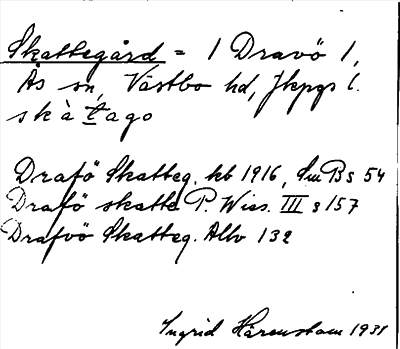 Skattegård = 1 Dravö 1,
Ås sn, Västbo hd, Jkpgs l.
skàtago
Drafö Skatteg. kb 1916, Sm Bs 54
Drafö skatte P. Wies. III s 157
Drafvö Skatteg. Allv 132
Ingrid Härenstam 1931